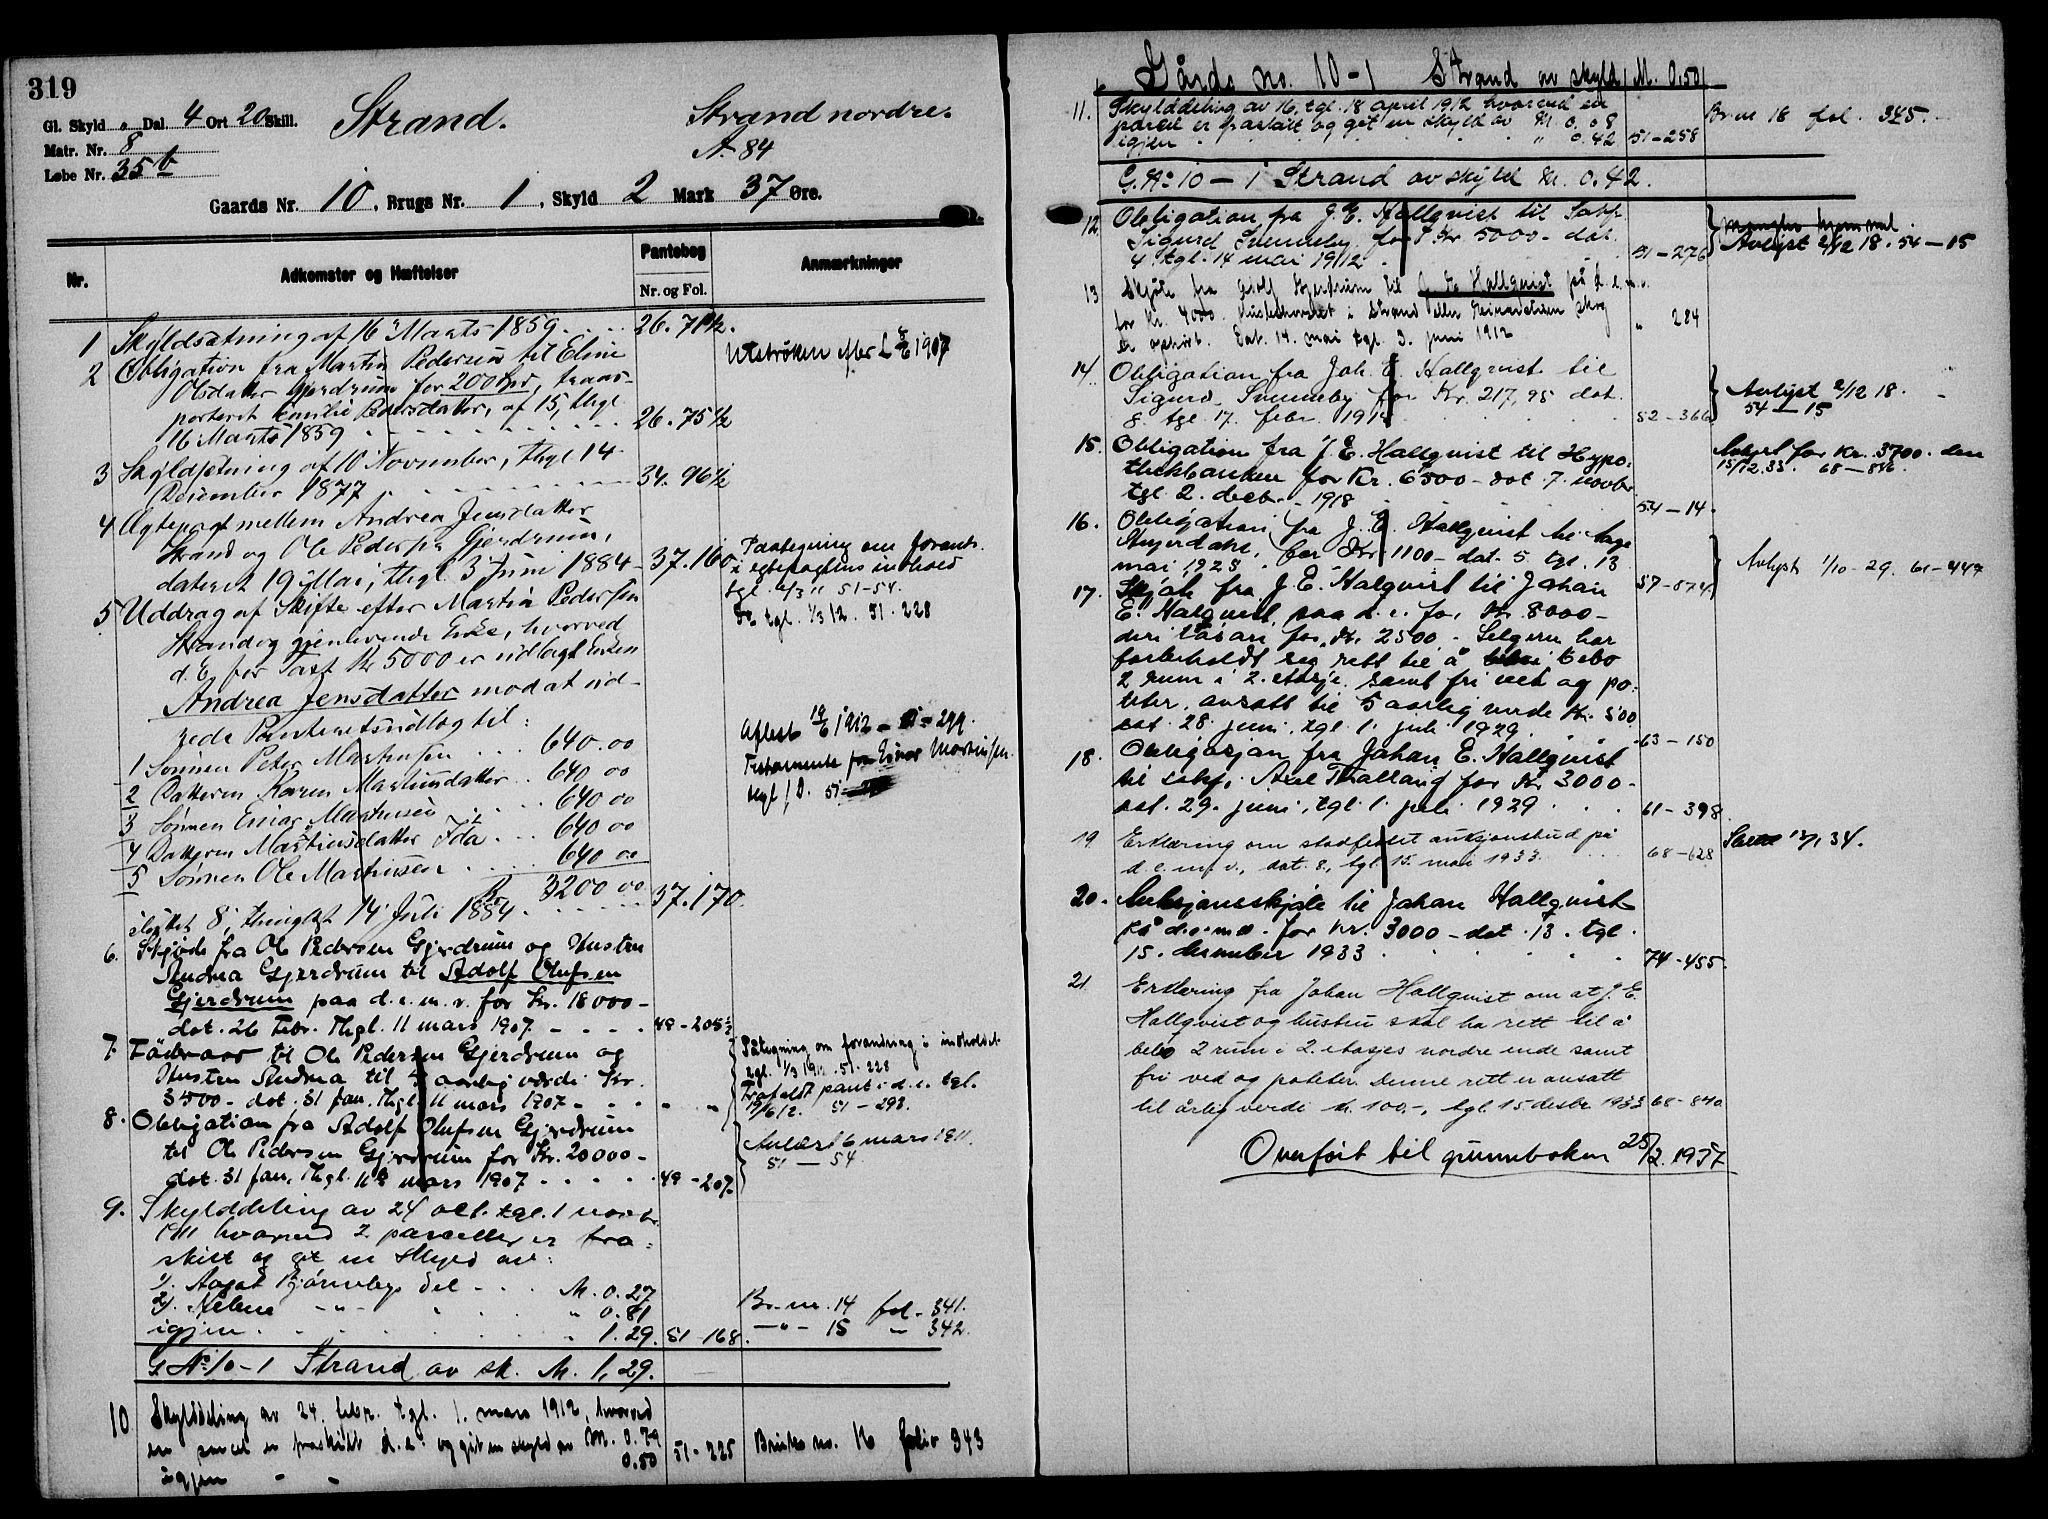 319
Gl. Skyld " Dal. 4 Ort 20 Skill.
Matr. Nr. 8
Løbe Nr. 35 b
Strand.
Strand nordre.
A. 84
Gaards Nr. 10, Brugs Nr. 1, Skyld 2 Mark 37 Øre.
Nr. Adkomster og Hæftelser Pantebog Nr. og Fol. Anmærkninger
1 Skyldsætning af 16 Marts 1859. 26. 71½.
2 Obligation fra Martin Pedersen til Eline
Olsdatter Gjerdrum for 200 Spd, trans-
porteret Emilie Pedersdatter, af 15, thgl
16 Marts 1859 26. 75½
Utstrøken efter L 1907
3 Skyldsetning af 10 November, thgl 14
December 1877 34. 96½
4 Ægtepagt mellem Andrea Jensdatter
Strand og Ole Pedersen Gjerdrum,
dateret 19 Mai, thgl 3 Juni 1884 37.160
Paategning om forandr.
i egtepagtens indhold
tgl. 6/3 11 51-54.
Do tgl. 1/3 12. 51. 228
5 Uddrag af Skifte efter Martin Pedersen
Strand og gjenlevende Enke, hvorved
d. E. for Taxt Kr 5000 er udlagt Enken
Andrea Jensdatter mod at ud-
rede Panteretsudlæg til:
1 Sønnen Peter Martinsen 640.00
2 Datteren Karen Martinsdatter 640 00
3 Sønnen Einar Martinsen 640 00
4 Datteren Martinsdatter Ida 640 00
5 Sønnen Ole Martinsen 640 00
Kr 3200 00
sluttet 8, thinglyst 14 Juli 1884. 37.170.
Aflest 19/6 1912 - 51-299.
Testamente fra Einar Martinsen
tgl
6. Skjøde fra Ole Pedersen Gjerdrum og Hustru
Andrea Gjerdrum til Adolf Olufsen
Gjerdrum paa d. e. m. v. for Kr. 18000-
dat. 26 Febr. Thgl. 11 mars 1907 49-205½
7. Föderaad til Ole Pedersen Gjerdrum og
Hustru Andrea til 5 aarlig værdi Kr.
3500- dat. 31 jan. Thgl. 11 mars 1907 " "
Påtegning om forandring i indholdet
tgl. 1/3 1912. 51. 228
Frafaldt pant i d. e. tgl.
19/6 12. 51-298.
8. Obligation fra Adolf Olufsen Gjerdrum
til Ole Pedersen Gjerdrum for Kr. 20000-
dat. 31 jan. Thgl. 11 mars 1907 49-207
Avlæst 6 mars 1911.
51-54
9. Skylddeling av 24 okt. tgl. 1 novbr.
1911 hvorved 2 parceller er fra-
skilt og git en skyld av:
1/. Aagot Bjørneby's del M. 0.27
2/. Helene -"- " 0.81
igjen " 1.29. 51-168.
Br. nr. 14 fol. 341.
-"- 15 " 342.
G No 10-1 Strand av sk. M. 1,29.
10 Skylddeling av 24. febr. tgl. 1. mars 1912, hvorved
en parcel er fraskilt d. e. og git en skyld av M. 0.79
igjen " " 0.50 51-225
Bruks no. 16 folio 343
Gårds no. 10-1 Strand av skyld M. 0,50
11. Skylddeling av 16, tgl. 18 april 1912 hvorved en
parcel er fraskilt og git en skyld av M. 0.08
igjen " 0.42 51-258
Br nr 18 fol. 345.
G. No 10-1 Strand av skyld M. 0.42.
12 Obligation fra J. E. Hallqvist til Sakf.
Sigurd Svenneby for Kr 5000- dat.
4 tgl. 14 mai 1912 51-276
mangler hjemmel.
Avlyst 2/12 18. 54-15
13 Skjøte fra Adolf Gjerdrum til J. E. Hallqvist på d. e. m. v.
for Kr. 4000. Huslehavret i Strand eller Reinaristuen skog
er ophørt. Dat. 14. mai tgl. 3. juni 1912 " 284
14. Obligation fra Joh. E. Hallqvist til
Sigurd Svenneby for Kr. 217,95 dat.
8. tgl. 17. febr. 191 52-366
Avlyst 2/12 18.
54-15
15. Obligation fra J. E. Hallqvist til Hypo-
thekbanken for Kr. 6500- dat. 7. novbr.
tgl. 2. decbr. 1918 54-14.
Avlyst for Kr. 3700. den
15/12.33. 68-
16. Obligation fra J. E. Hallqvist til Aage
Anjerdahl for Kr 1100- dat. 5 tgl. 13
mai 1923 57-
Avlyst 1/10-29. 61-447
17. Skjøte fra J. E. Halqvist til Johan
E. Halqvist paa d. e. for Kr. 8000-
deri løsøre for Kr 2500- Selgeren har
forbeholdt sig rett til å bebo
2 rum i 2. etasje samt fri ved og po-
teter, ansatt til 5 aarlig verde Kr. 500
dat. 28. juni, tgl. 1. juli 1929. 63-150
18. Obligasjon fra Johan E. Hallqvist
til sakf. Axel Thallaug for Kr 3000-
dat. 29. juni, tgl. 1. juli 1929 61-398
19 Erklæring om stadfestet auksjonsbud på
d. e. m. v., dat. 8, tgl. 15. mai 1933. 68-628
34.
20. Auksjonsskjøte til Johan Hallqvist
på d. e. m. v. for Kr. 3000- dat. 13. tgl.
15. desember 1933 74-455.
21 Erklæring fra Johan Hallqvist om at J. E.
Hallqvist og hustru skal ha rett til å
bebo 2 rum i 2. etasjes nordre ende samt
fri ved og poteter. Denne rett er ansatt
til årlig verdi kr. 100.-, tgl. 15 desbr. 1933 68-840
Overført til grunnboken 25/2. 1957